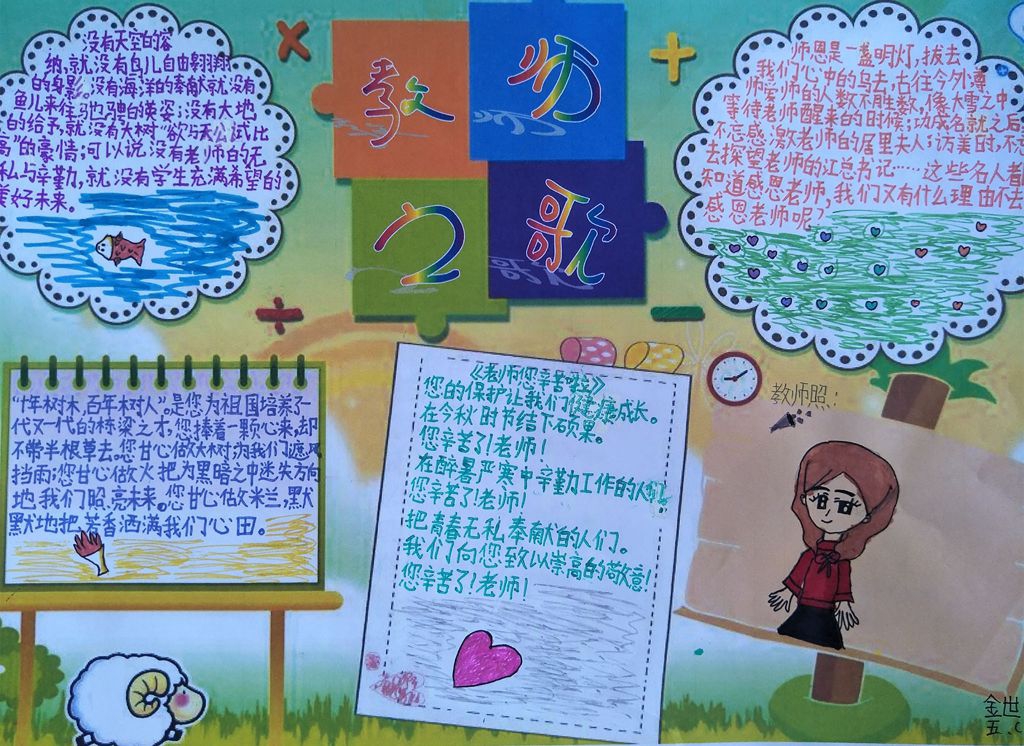 教师
之歌
没有天空的容
纳,就没有鸟儿自由翱翔
的身影;没有海洋的奉献就没有
鱼儿来往驰骋的英姿;没有大地
的给予,就没有大树“欲与天公试比
高”的豪情;可以说没有老师的无
私与辛勤,就没有学生充满希望的
美好未来。
师恩是一盏明灯,拔去
我们心中的乌去,古往今外,尊
师爱师的人数不胜数,像大雪之中
等待老师醒来的时候;功成名就之后
不忘感激老师的居里夫人;访美时,不忘
去探望老师的江总书记……这些名人者
知道感恩老师,我们又有什么理由不去
感恩老师呢?
“十年树木,百年树人”。是您为祖国培养了一
代又一代的栋梁之才,您捧着一颗心来,却
不带半根草去。您甘心做大树,为我们遮风
挡雨;您甘心做火把为黑暗之中迷失方向
地我们照亮未来。您甘心做米兰,默
默地把芳香洒满我们心田。
《老师您辛苦啦》
您的保护让我们健康成长。
在今秋时节结下硕果。
您辛苦了!老师!
在酷暑严寒中辛勤工作的人们!
您辛苦了!老师!
把青春无私奉献的人们。
我们向您致以崇高的敬意!
您辛苦了!老师!
教师照:
金世
五、